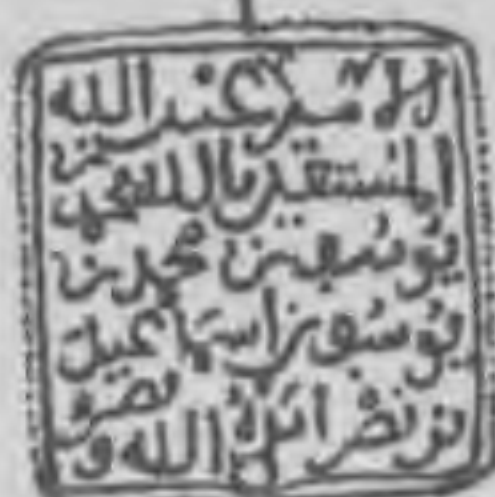 الامير عبد الله
المستعين بالله محمد بن
يوسف بن محمد بن
يوسف بن اسماعيل
بن نصر ايده الله ونصره